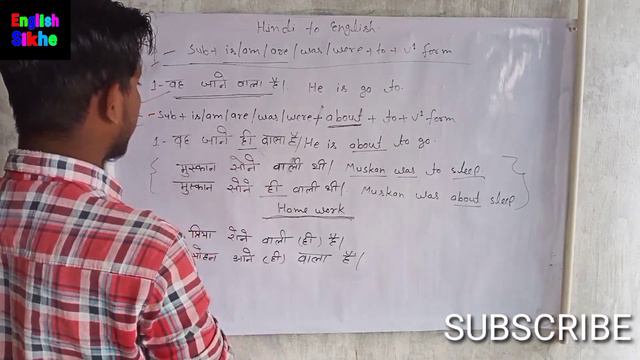 English
Sikhe
Hindi to English
- Sub + is/am/are/was/were + to + v¹ form
1- वह जाने वाला है/. He is go to.
- Sub + is/am/are/was/were + about + to + v¹ form
1- वह जाने ही वाला है/ He is about to go.
मुस्कान सोने वाली थी/ Muskan was to sleep
मुस्कान सोने ही वाली थी/. Muskan was about sleep
Home work
प्रिया रोने वाली (ही) है/
मोहन आने (ही) वाला है/
SUBSCRIBE